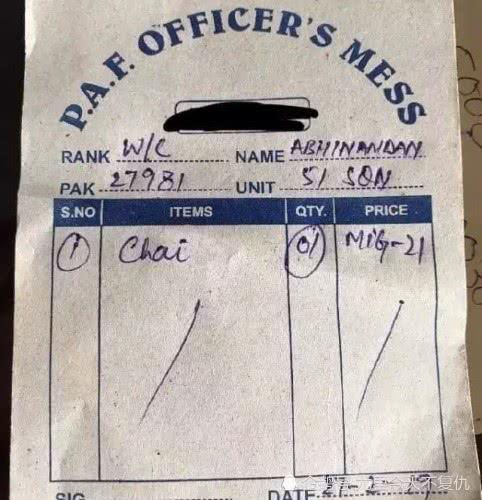 P.A.F. OFFICER'S MESS
RANK W/C NAME ABHINANDAN
PAK 27981 UNIT 51 SQN
S.NO ITEMS QTY. PRICE
1 Chai 01 MiG-21
SIG DATE